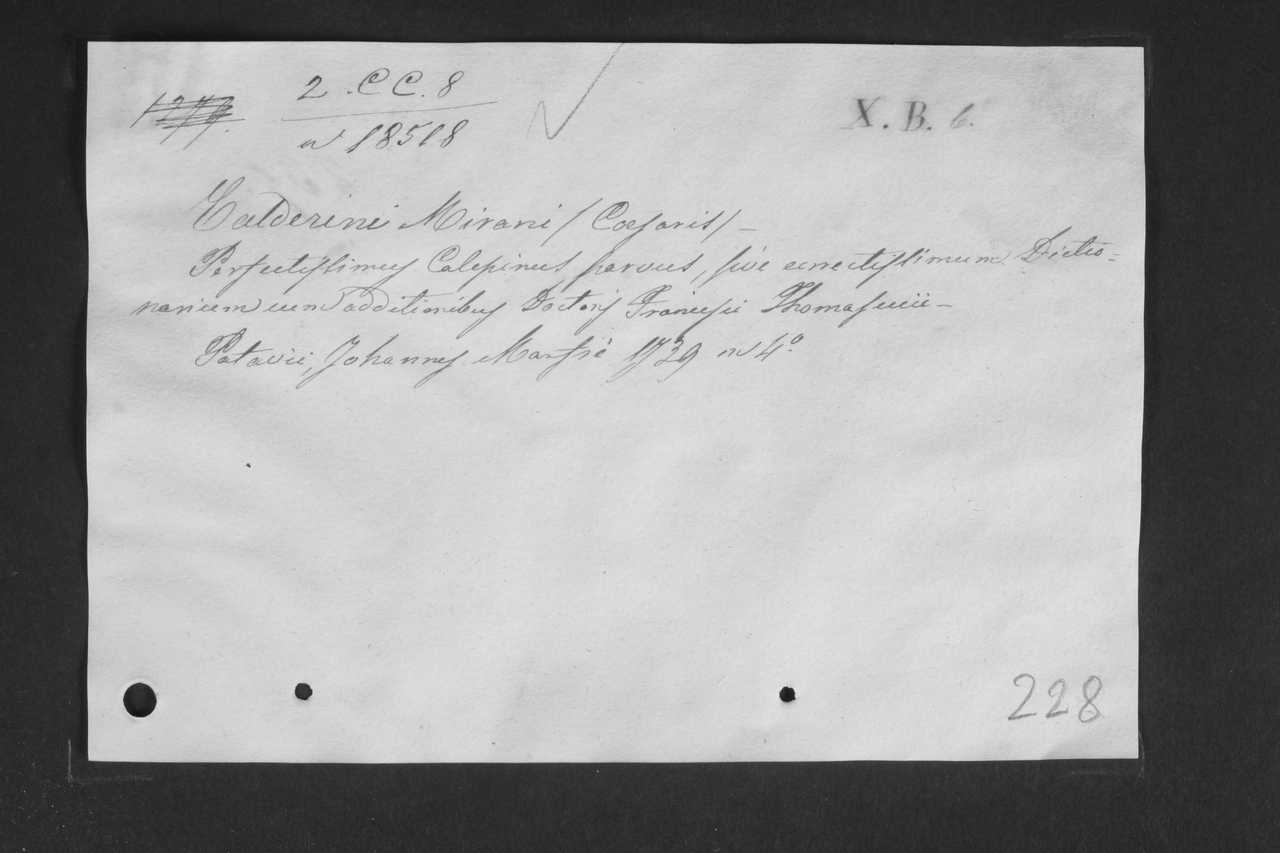 2 . C C . 8
X. B. 6.
n 18518
Calderini Mirani / Caesaris / -
Perfectissimus Calepinus parvus, sive correctissimum Dictio=
narium cum additionibus Doctoris Francisci Thomasucii -
Patavii, Johannes Manfrè 1739 in 4º
228